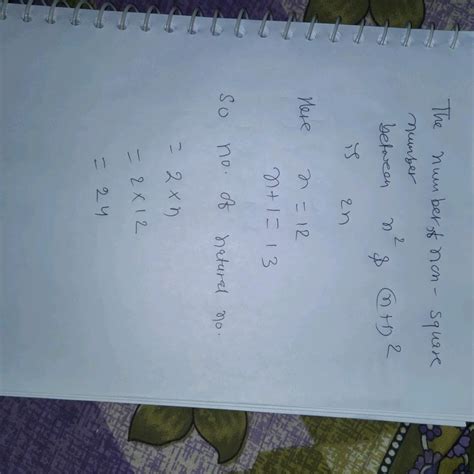 The number of non-square
number
between n² & (n+1)²
is 2n
Here n = 12
n+1 = 13
So no. of natural no.
= 2 × n
= 2 × 12
= 24